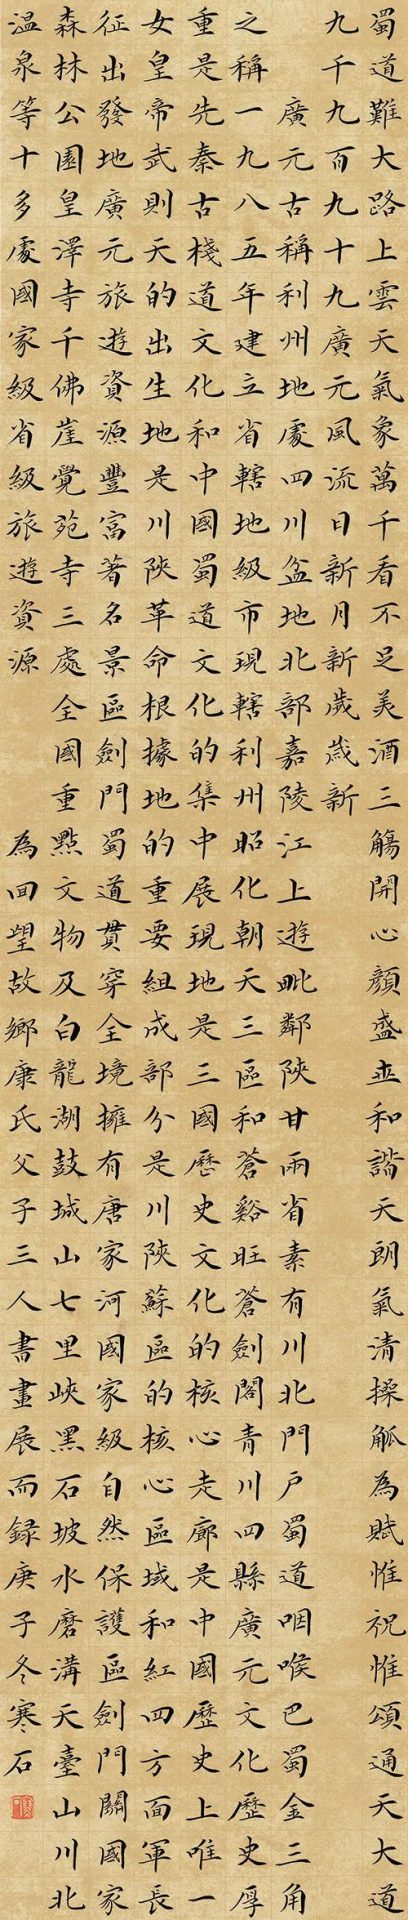 蜀道難大路上雲天氣象萬千看不足美酒三觴開心顏盛世和諧天朗氣清操觚為賦惟祝惟頌通天大道
九千九百九十九廣元風流日新月新歲歲新
廣元古稱利州地處四川盆地北部嘉陵江上遊毗鄰陝甘兩省素有川北門戶蜀道咽喉巴蜀金三角
之稱一九八五年建立省轄地級市現轄利州昭化朝天三區和蒼谿旺蒼劍閣青川四縣廣元文化歷史厚
重是先秦古棧道文化和中國蜀道文化的集中展現地是三國歷史文化的核心走廊是中國歷史上唯一
女皇帝武則天的出生地是川陝革命根據地的重要組成部分是川陝蘇區的核心區域和紅四方面軍長
征出發地廣元旅遊資源豐富著名景區劍門蜀道貫穿全境擁有唐家河國家級自然保護區劍門關國家
森林公園皇澤寺千佛崖覺苑寺三處全國重點文物及白龍湖鼓城山七里峽黑石坡水磨溝天臺山川北
溫泉等十多處國家級省級旅遊資源 為回望故鄉康氏父子三人書畫展而録庚子冬寒石